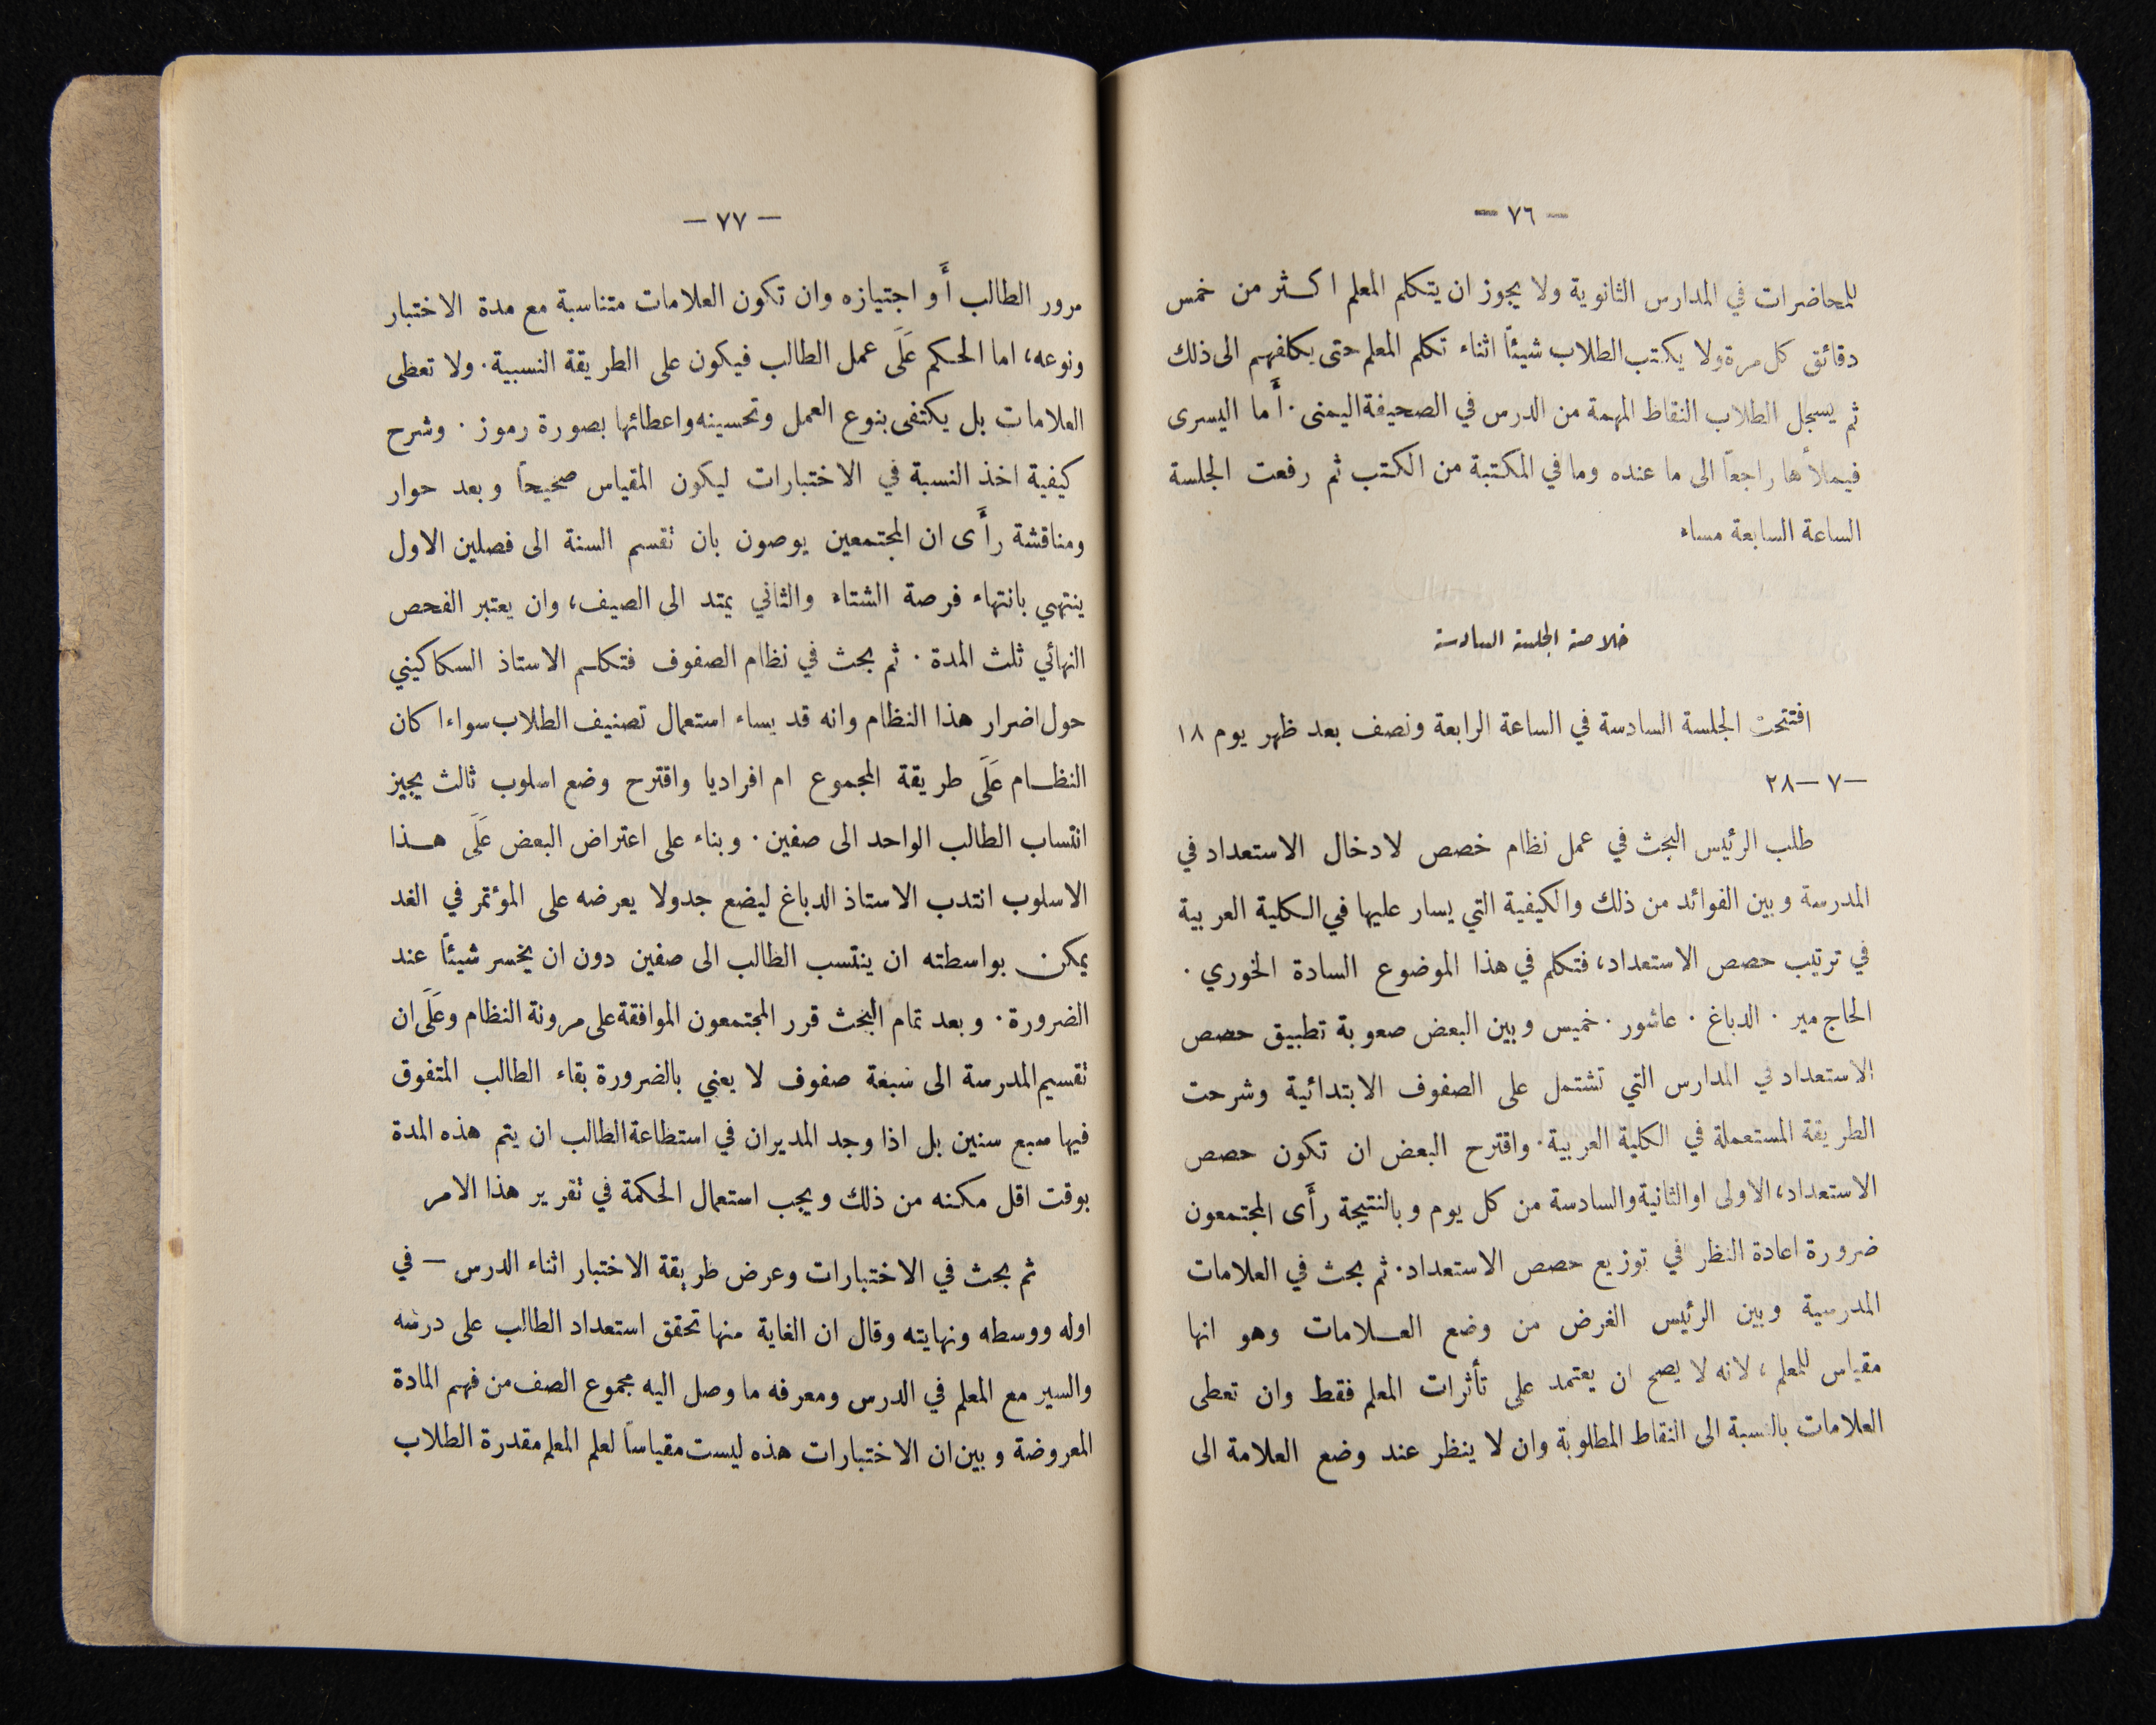 — ٧٦ —
للمحاضرات في المدارس الثانوية ولا يجوز ان يتكلم المعلم اكثر من خمس
دقائق كل مرة ولا يكتب الطلاب شيئاً اثناء تكلم المعلم حتى يكلفهم الى ذلك
ثم يسجل الطلاب النقاط المهمة من الدرس في الصحيفة اليمنى . أَما اليسرى
فيملأها راجعاً الى ما عنده وما في المكتبة من الكتب ثم رفعت الجلسة
الساعة السابعة مساء
خلاصة الجلسة السادسة
افتتحت الجلسة السادسة في الساعة الرابعة ونصف بعد ظهر يوم ١٨
—٧—٢٨
طلب الرئيس البحث في عمل نظام خصص لادخال الاستعداد في
المدرسة وبين الفوائد من ذلك والكيفية التي يسار عليها في الكلية العربية
في ترتيب حصص الاستعداد، فتكلم في هذا الموضوع السادة الخوري .
الحاج مير . الدباغ . عاشور . خميس وبين البعض صعوبة تطبيق حصص
الاستعداد في المدارس التي تشتمل على الصفوف الابتدائية وشرحت
الطريقة المستعملة في الكلية العربية . واقترح البعض ان تكون حصص
الاستعداد، الاولى او الثانية والسادسة من كل يوم وبالنتيجة رأَى المجتمعون
ضرورة اعادة النظر في توزيع حصص الاستعداد . ثم بحث في العلامات
المدرسية وبين الرئيس الغرض من وضع العلامات وهو انها
مقياس للمعلم ، لانه لا يصح ان يعتمد على تأثرات المعلم فقط وان تعطى
العلامات بالنسبة الى النقاط المطلوبة وان لا ينظر عند وضع العلامة الى
— ٧٧ —
مرور الطالب أَو اجتيازه وان تكون العلامات متناسبة مع مدة الاختبار
ونوعه، اما الحكم عَلَى عمل الطالب فيكون على الطريقة النسبية . ولا تعطى
العلامات بل يكتفى بنوع العمل وتحسينه واعطائها بصورة رموز . وشرح
كيفية اخذ النسبة في الاختبارات ليكون المقياس صحيحاً وبعد حوار
ومناقشة رأَى ان المجتمعين يوصون بان تقسم السنة الى فصلين الاول
ينتهي بانتهاء فرصة الشتاء والثاني يمتد الى الصيف، وان يعتبر الفحص
النهائي ثلث المدة . ثم بحث في نظام الصفوف فتكلم الاستاذ السكاكيني
حول اضرار هذا النظام وانه قد يساء استعمال تصنيف الطلاب سواءا كان
النظام عَلَى طريقة المجموع ام افراديا واقترح وضع اسلوب ثالث يجيز
انتساب الطالب الواحد الى صفين . وبناء على اعتراض البعض عَلَى هذا
الاسلوب انتدب الاستاذ الدباغ ليضع جدولا يعرضه على المؤتمر في الغد
يمكن بواسطته ان ينتسب الطالب الى صفين دون ان يخسر شيئاً عند
الضرورة . وبعد تمام البحث قرر المجتمعون الموافقة على مرونة النظام وعَلَى ان
تقسيم المدرسة الى سبعة صفوف لا يعني بالضرورة بقاء الطالب المتفوق
فيها سبع سنين بل اذا وجد المديران في استطاعة الطالب ان يتم هذه المدة
بوقت اقل مكنه من ذلك ويجب استعمال الحكمة في تقرير هذا الامر
ثم بحث في الاختبارات وعرض طريقة الاختبار اثناء الدرس — في
اوله ووسطه ونهايته وقال ان الغاية منها تحقق استعداد الطالب على درسه
والسير مع المعلم في الدرس ومعرفه ما وصل اليه مجموع الصف من فهم المادة
المعروضة وبين ان الاختبارات هذه ليست مقياساً لعلم المعلم مقدرة الطلاب